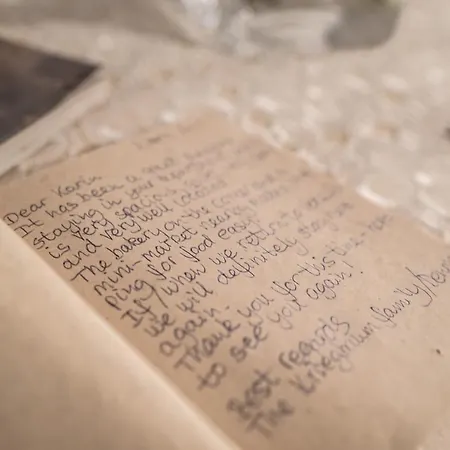 Dear Karin
It has been a great
staying in your
is very spacious,
and very well located
The bakery on the corner and
mini-market nearby
ping for food easy!
If/when we return to
we will definitely stay
again.
Thank you for this
to see you again!
Best regards
The family/